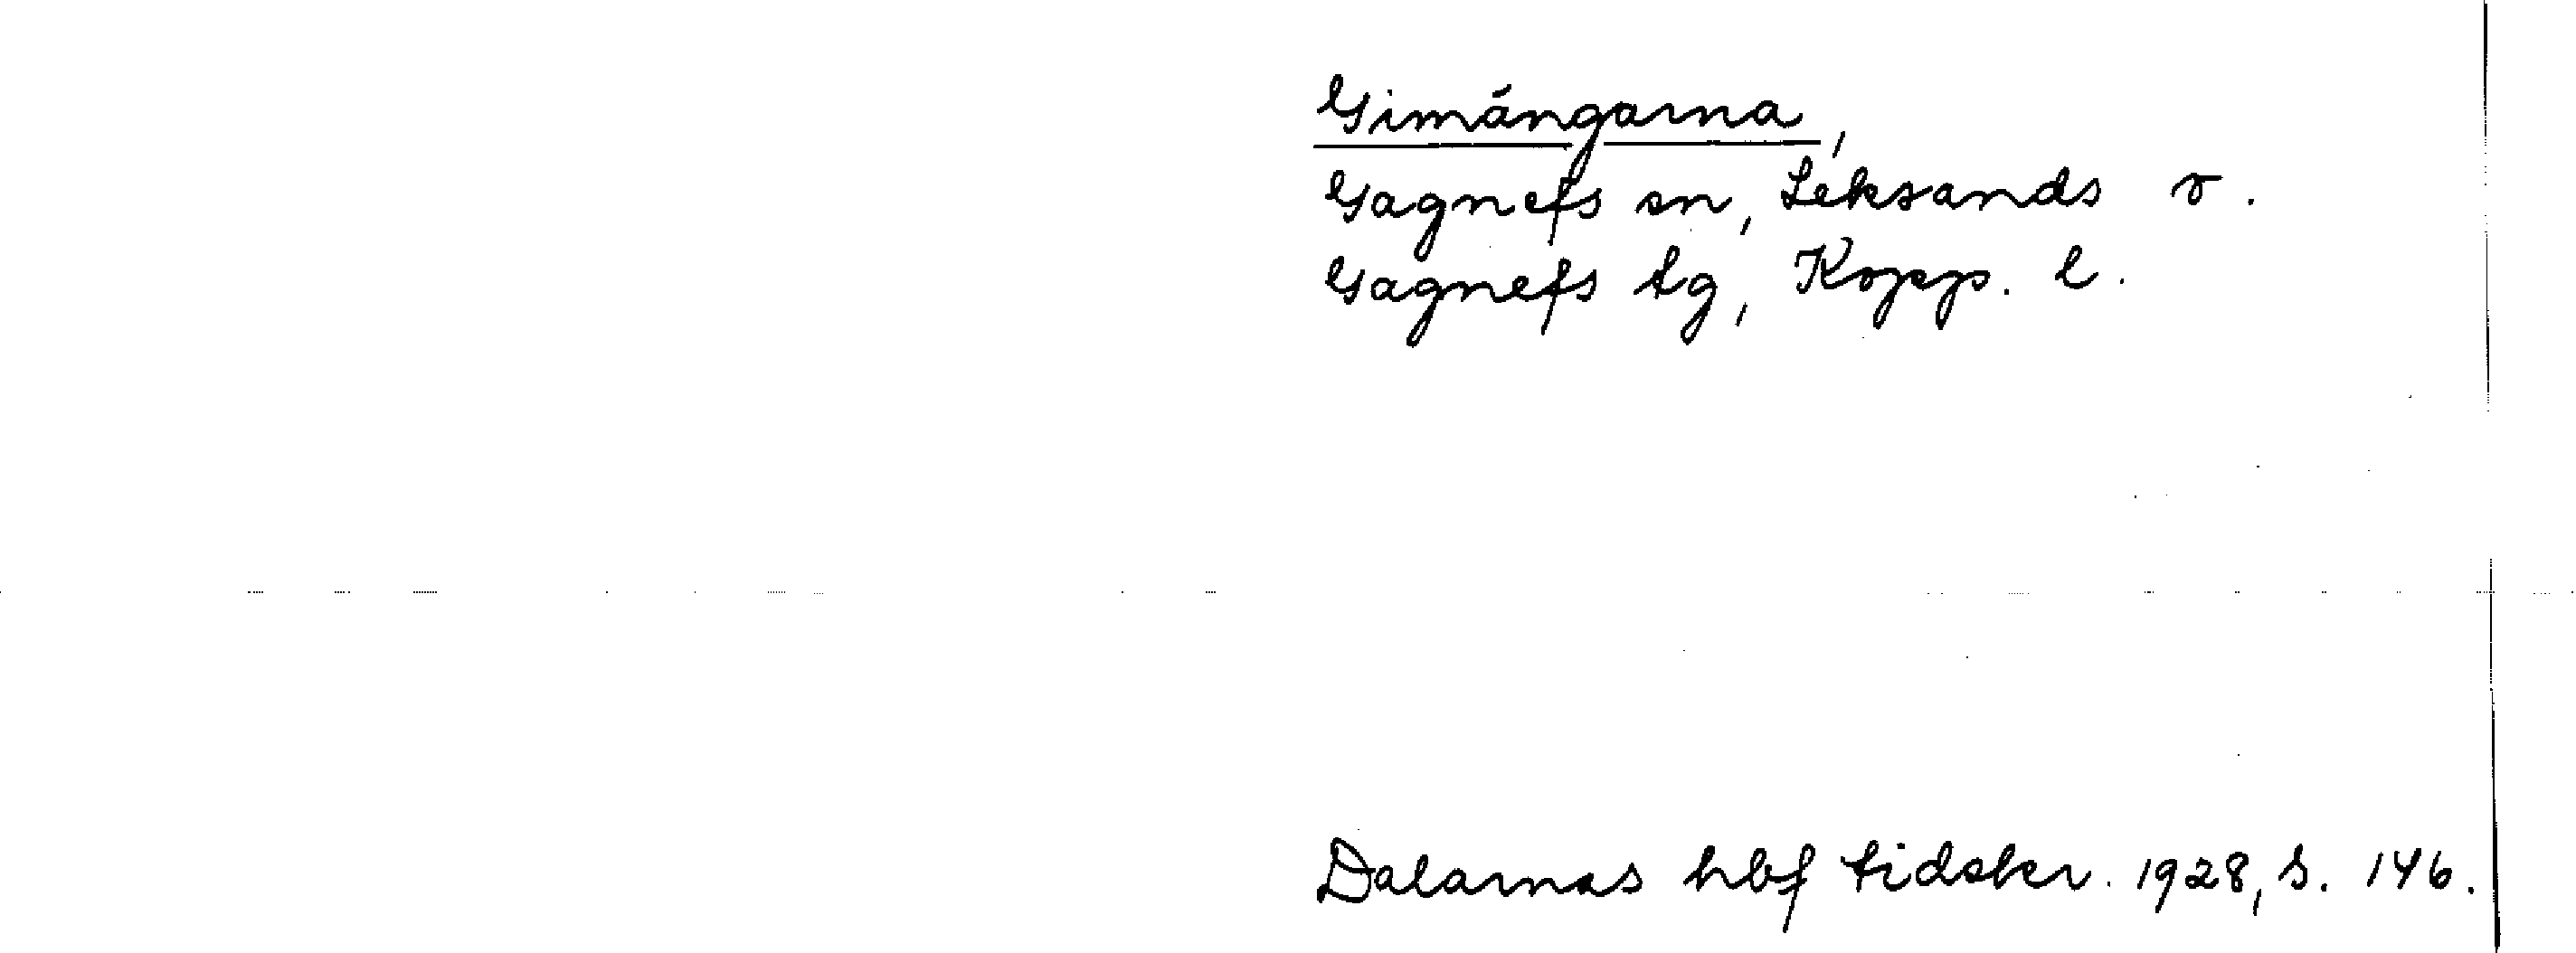 Gimångarna,
Gagnefs sn, Leksands r.
Gagnefs tg, Kopp. l.
Dalarnas hbf tidskr. 1928, s. 146.